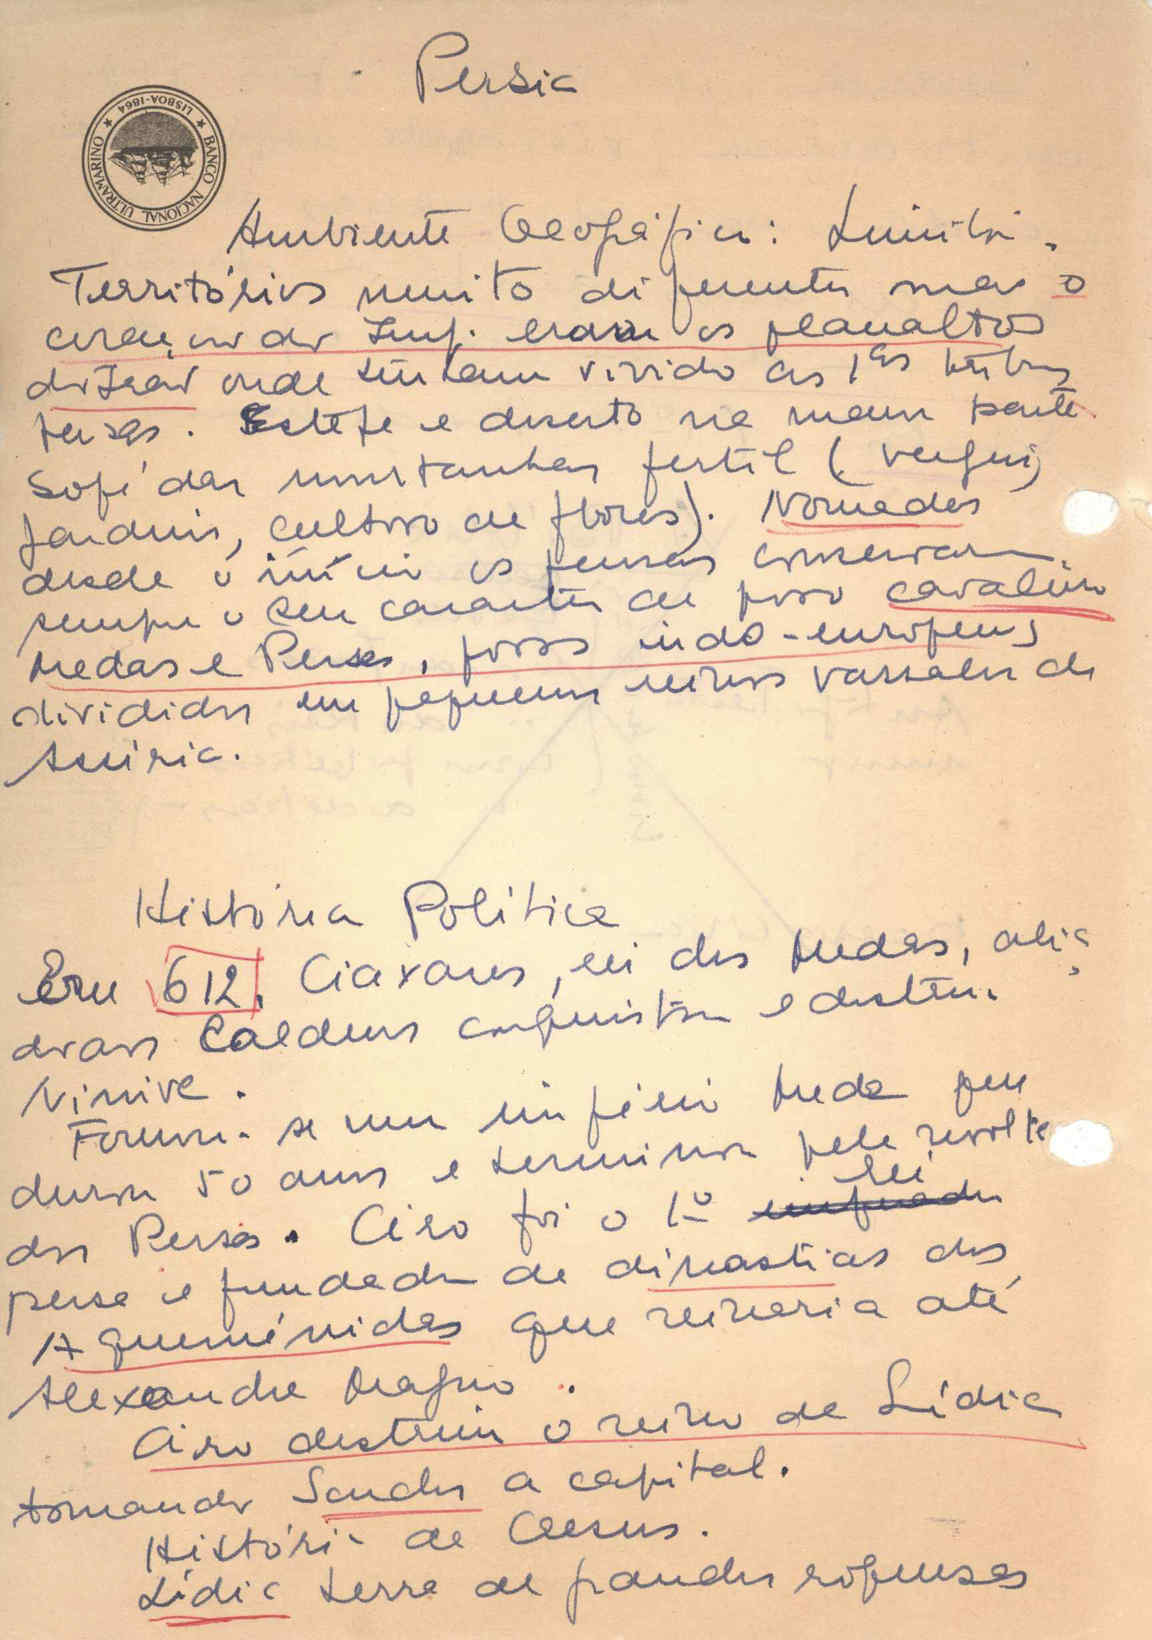 Persia
BANCO NACIONAL ULTRAMARINO
LISBOA-1864
Ambiente Geográfico: Limites.
Territórios muito diferentes mas o
coração do Imp. eram os planaltos
do Irão onde tinham vivido as 1as tribus
persas. Estepe e deserto na maior parte
Sopé das montanhas fertil (vergeis,
jardins, cultivo de flores). Nomades
desde o início os persas conservaram
sempre o seu caracter de povo cavaleiro
Medas e Persas, povos indo-europeus,
divididos em pequenos reinos vassalos da
Assíria.
História Política
Em 612. Ciaxares, rei dos Medas, alia
dos aos Caldeus conquistou e destrui
Ninive.
Formou-se um império Meda que
durou 50 anos e terminou pela revolta
dos Persas. Ciro foi o 1º rei
persa e fundador da dinastias dos
Aqueménidas que reinaria até
Alexandre Magno.
Ciro destruiu o reino da Lídia
tomando Sardes a capital.
História de Cresus.
Lídia terra de grandes riquezas